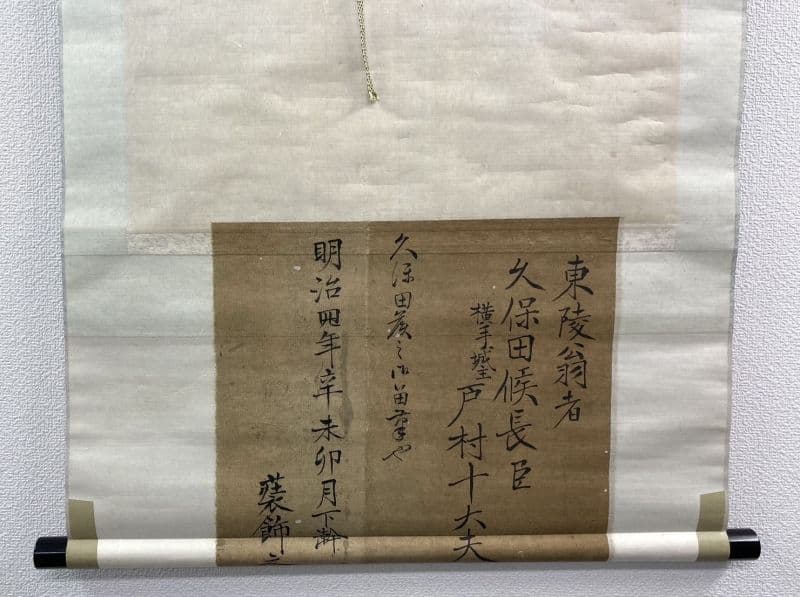 東陵翁者
久保田候長臣
横手城主
戸村十大夫
久保田侯之御苗筆也
明治四年辛未卯月下澣
装飾之